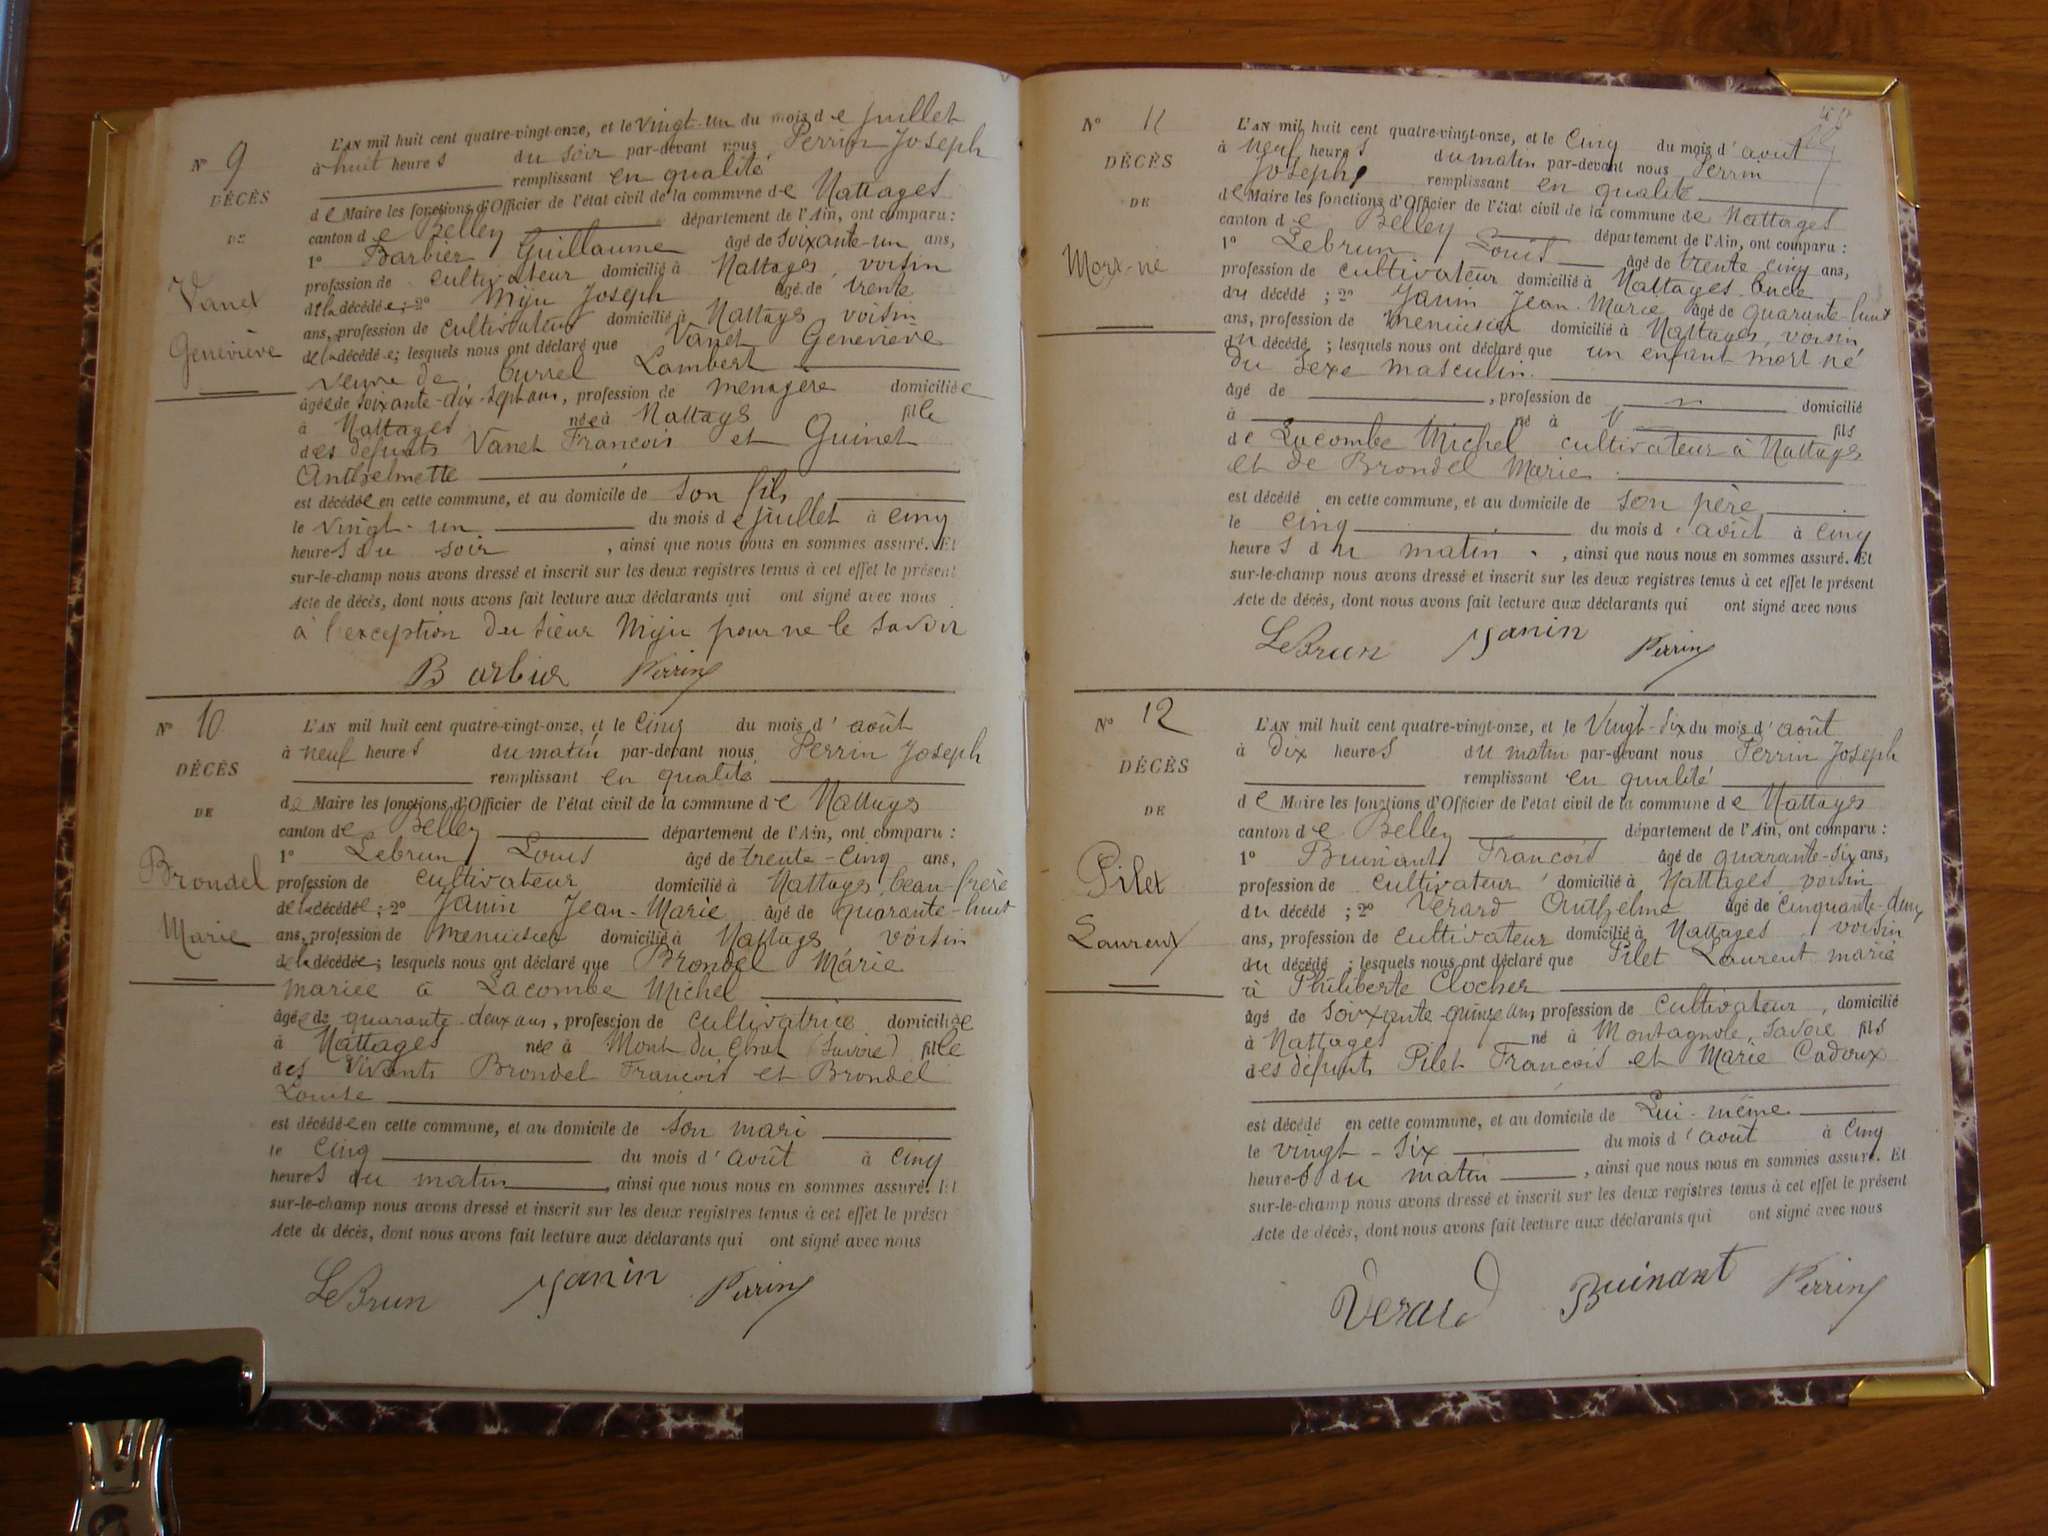 N° 9
DÉCÈS
DE
Vanet
Geneviève
L'AN mil huit cent quatre-vingt-onze, et le vingt-un du mois de juillet
à huit heures du soir par-devant nous Perrin Joseph
remplissant en qualité
de Maire les fonctions d'Officier de l'état civil de la commune de Nattages
canton de Belley département de l'Ain, ont comparu :
1° Barbier Guillaume âgé de soixante-un ans,
profession de cultivateur domicilié à Nattages, voisin
de la décédée ; 2° Miju Joseph âgé de trente
ans, profession de cultivateur domicilié à Nattages voisin
de la décédée ; lesquels nous ont déclaré que Vanet Geneviève
veuve de Lambert
âgée de soixante-dix-sept ans, profession de ménagère domiciliée
à Nattages née à Nattages fille
des défunts Vanet François et Guinet
Anthelmette
est décédée en cette commune, et au domicile de son fils
le vingt-un du mois de juillet à cinq
heures du soir, ainsi que nous nous en sommes assuré. Et
sur-le-champ nous avons dressé et inscrit sur les deux registres tenus à cet effet le présent
Acte de décès, dont nous avons fait lecture aux déclarants qui ont signé avec nous
à l'exception du sieur Miju pour ne le savoir
Barbier Perrin
N° 10
DÉCÈS
DE
Brondel
Marie
L'AN mil huit cent quatre-vingt-onze, et le cinq du mois d'août
à neuf heures du matin par-devant nous Perrin Joseph
remplissant en qualité
de Maire les fonctions d'Officier de l'état civil de la commune de Nattages
canton de Belley département de l'Ain, ont comparu :
1° Lebrun Louis âgé de trente-cinq ans,
profession de cultivateur domicilié à Nattages, beau-frère
de la décédée ; 2° Janin Jean-Marie âgé de quarante-huit
ans, profession de menuisier domicilié à Nattages, voisin
de la décédée ; lesquels nous ont déclaré que Brondel Marie
mariée à Lacombe Michel
âgée de quarante-deux ans, profession de cultivatrice domiciliée
à Nattages née à Mont du Chat (Savoie) fille
des vivants Brondel François et Brondel
Louise
est décédée en cette commune, et au domicile de son mari
le cinq du mois d'août à cinq
heures du matin, ainsi que nous nous en sommes assuré. Et
sur-le-champ nous avons dressé et inscrit sur les deux registres tenus à cet effet le présent
Acte de décès, dont nous avons fait lecture aux déclarants qui ont signé avec nous
LeBrun Janin Perrin
N° 11
DÉCÈS
DE
Mort-né
L'AN mil huit cent quatre-vingt-onze, et le cinq du mois d'août
à neuf heures du matin par-devant nous Perrin
Joseph remplissant en qualité
de Maire les fonctions d'Officier de l'état civil de la commune de Nattages
canton de Belley département de l'Ain, ont comparu :
1° Lebrun Louis âgé de trente-cinq ans,
profession de cultivateur domicilié à Nattages oncle
du décédé ; 2° Janin Jean-Marie âgé de quarante-huit
ans, profession de menuisier domicilié à Nattages, voisin
du décédé ; lesquels nous ont déclaré que un enfant mort né
du sexe masculin.
âgé de , profession de domicilié
à né à fils
de Lacombe Michel cultivateur à Nattages
et de Brondel Marie
est décédé en cette commune, et au domicile de son père
le cinq du mois d'août à cinq
heures du matin, ainsi que nous nous en sommes assuré. Et
sur-le-champ nous avons dressé et inscrit sur les deux registres tenus à cet effet le présent
Acte de décès, dont nous avons fait lecture aux déclarants qui ont signé avec nous
LeBrun Janin Perrin
N° 12
DÉCÈS
DE
Pilet
Laurent
L'AN mil huit cent quatre-vingt-onze, et le vingt-six du mois d'août
à dix heures du matin par-devant nous Perrin Joseph
remplissant en qualité
de Maire les fonctions d'Officier de l'état civil de la commune de Nattages
canton de Belley département de l'Ain, ont comparu :
1° Buinant François âgé de quarante-six ans,
profession de cultivateur domicilié à Nattages voisin
du décédé ; 2° Verard Anthelme âgé de cinquante-deux
ans, profession de cultivateur domicilié à Nattages, voisin
du décédé ; lesquels nous ont déclaré que Pilet Laurent marié
à Philiberte Clocher
âgé de soixante-quinze ans profession de cultivateur, domicilié
à Nattages né à Montagnole, Savoie fils
des défunts Pilet François et Marie Cadoux
est décédé en cette commune, et au domicile de Lui-même
le vingt-six du mois d'août à cinq
heures du matin, ainsi que nous nous en sommes assuré. Et
sur-le-champ nous avons dressé et inscrit sur les deux registres tenus à cet effet le présent
Acte de décès, dont nous avons fait lecture aux déclarants qui ont signé avec nous
Verard Buinant Perrin